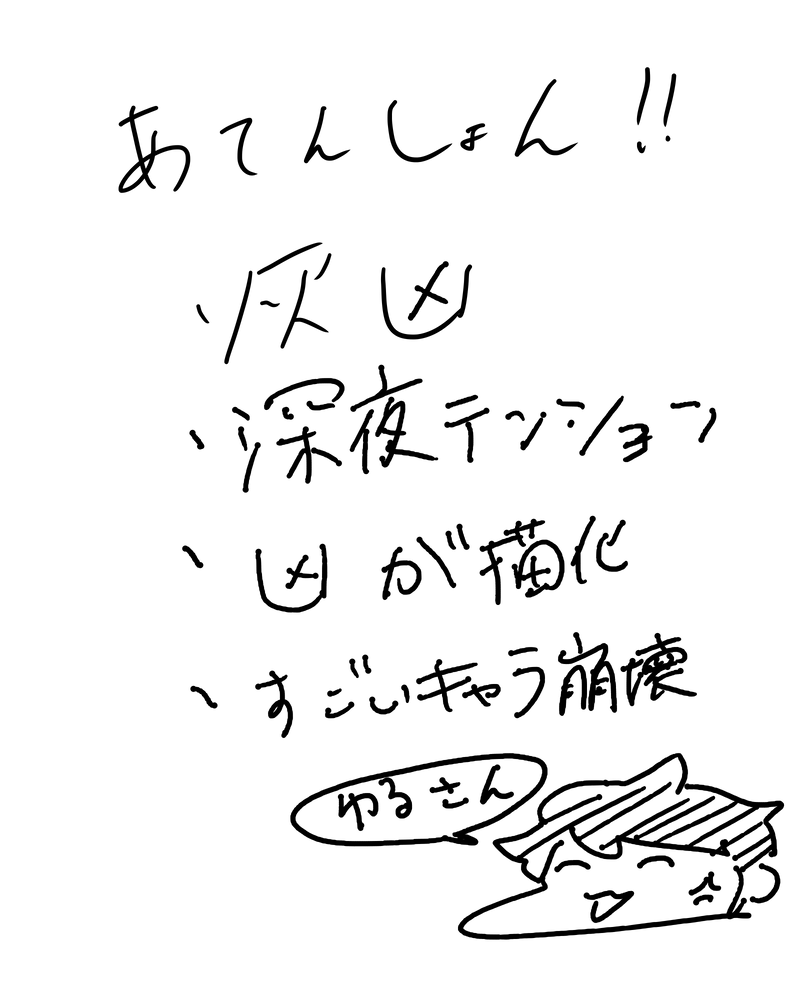 あてんしょん!!
、灰凶
、深夜テンション
、凶が描化
、すごいキャラ崩壊
ゆるさん